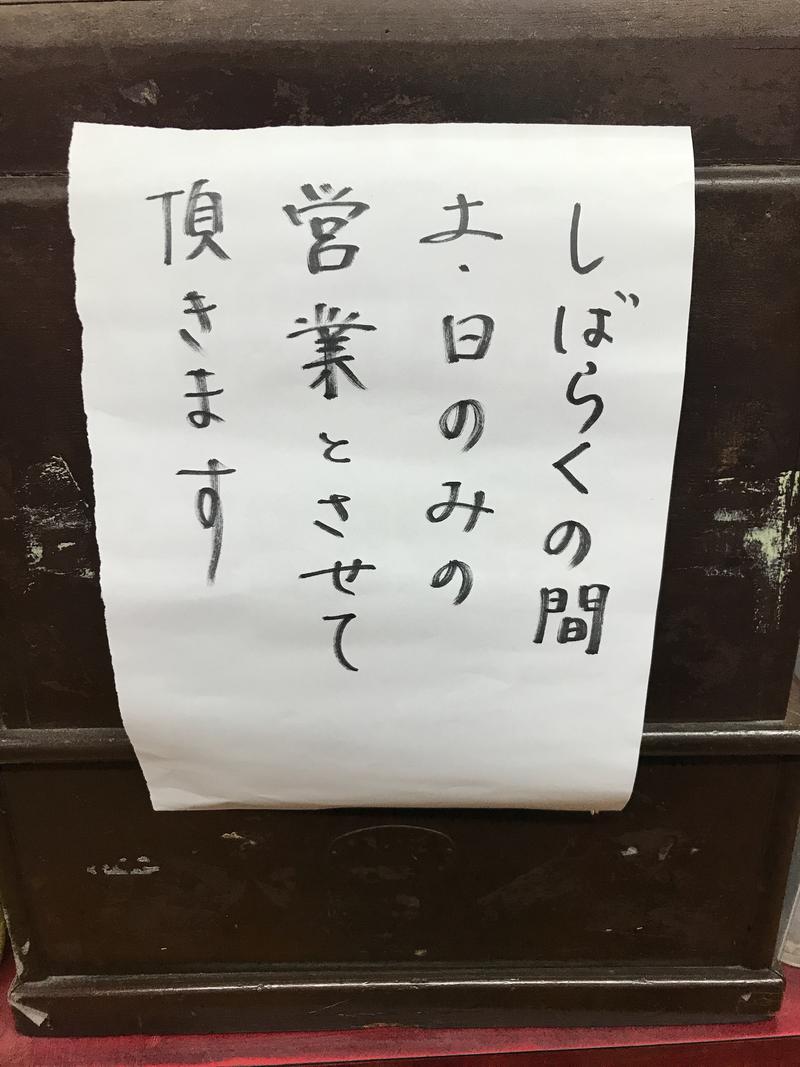 しばらくの間
土・日のみの
営業とさせて
頂きます